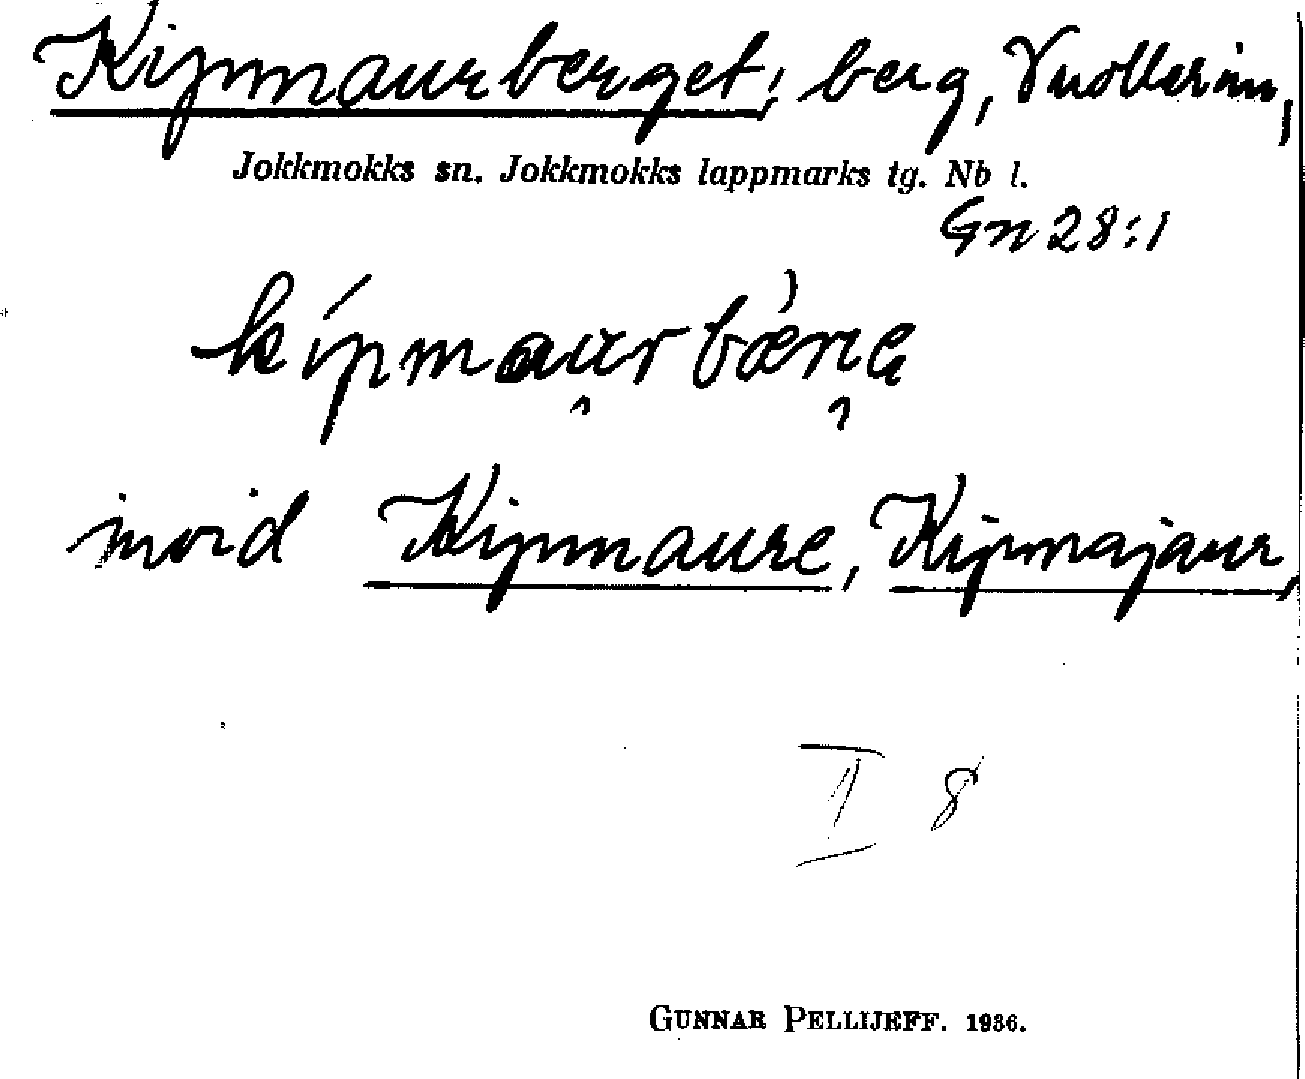 Kipmaurberget; berg, Vuollerim,
Jokkmokks sn. Jokkmokks lappmarks tg. Nb l.
Gn 28:1
invid Kipmaure, Kipmajaur,
I 8
GUNNAR PELLIJEFF. 1936.